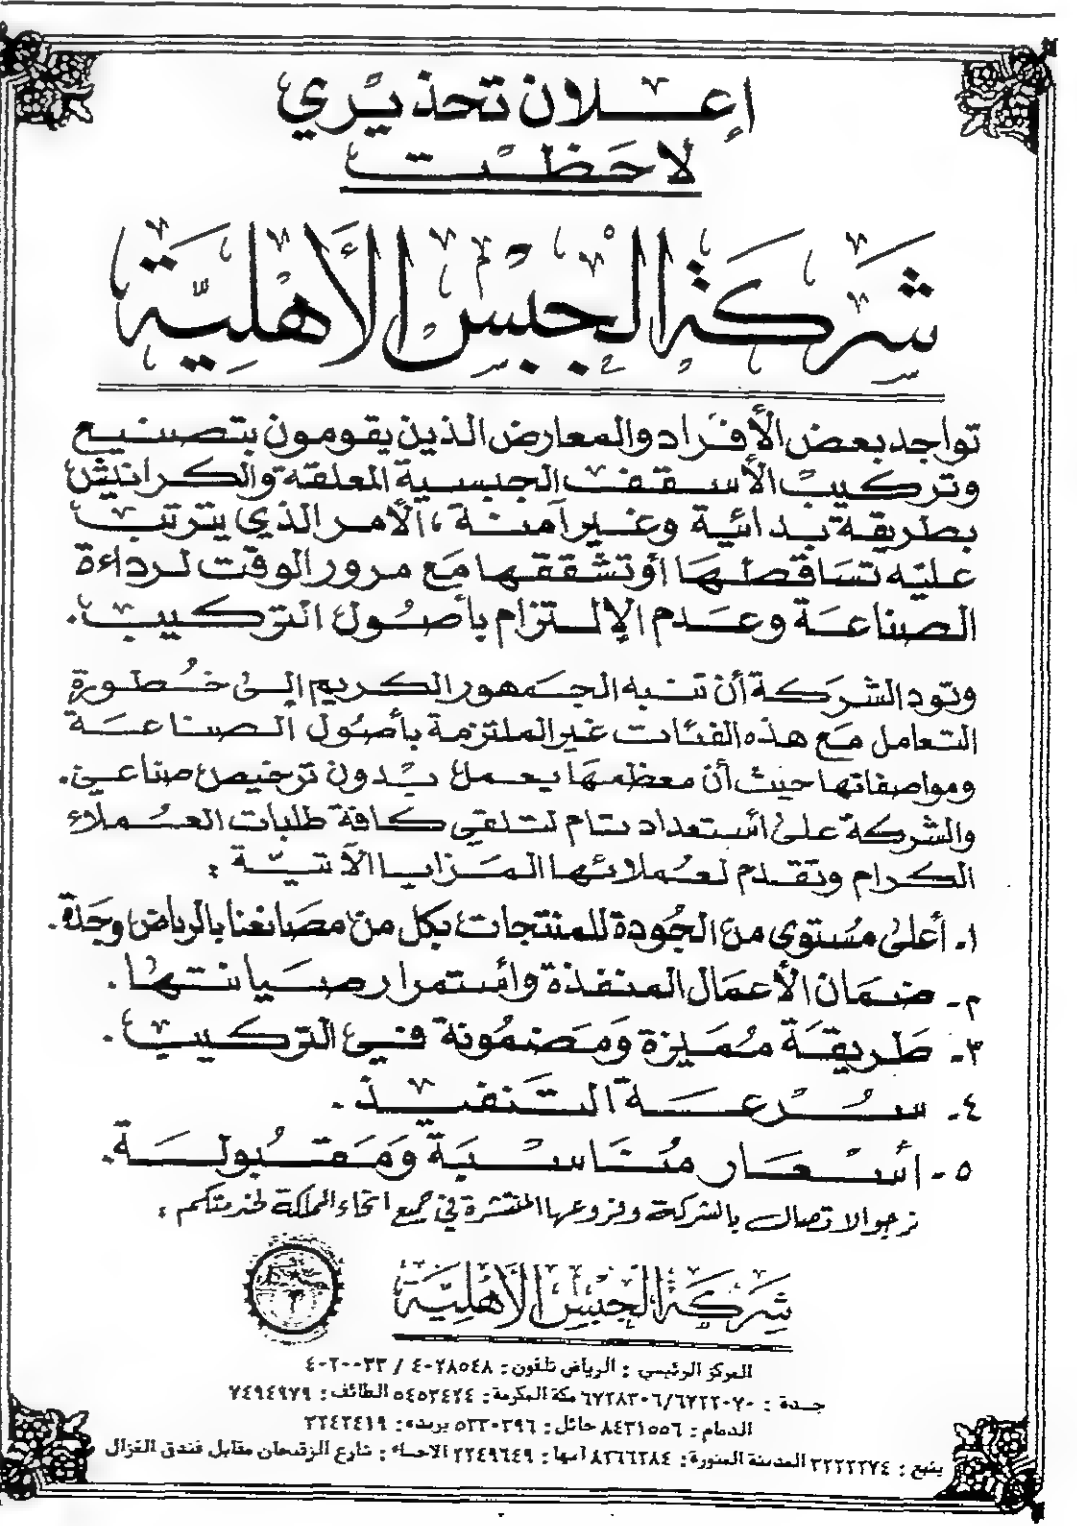 إعلان تحذيري
لاحظت
شركة الجبس الأهلية
تواجد بعض الأفراد والمعارض الذين يقومون بتصنيع
وتركيب الأسقف الجبسية المعلقة والكرانيش
بطريقة بدائية وغير آمنة، الأمر الذي يترتب
عليه تساقطها أو تشققها مع مرور الوقت لرداءة
الصناعة وعدم الإلتزام بأصول التركيب.
وتود الشركة أن تنبه الجمهور الكريم إلى خطورة
التعامل مع هذه الفئات غير الملتزمة بأصول الصناعة
ومواصفاتها حيث أن معظمها يعمل بدون ترخيص صناعي.
والشركة على أستعداد تام لتلقي كافة طلبات العملاء
الكرام وتقدم لعملائها المزايا الآتية :
١- أعلى مستوى من الجودة للمنتجات بكل من مصانعنا بالرياض وجدة.
٢- ضمان الأعمال المنفذة وأستمرار صيانتها.
٣- طريقة مميزة ومضمونة في التركيب.
٤- سرعة التنفيذ.
٥- أسعار مناسبة ومقبولة.
نرجو الاتصال بالشركة وفروعها المنتشرة في جميع انحاء المملكة لخدمتكم :
شركة الجبس الأهلية
المركز الرئيسي : الرياض تلفون : ٤٠٢٨٥٤٨ / ٤٠٢٠٠٣٣
جدة : ٦٧٢٨٣٠٦/٦٧٢٢٠٧٠ مكة المكرمة : ٥٤٥٣٤٢٤ الطائف : ٧٤٩٤٩٧٩
الدمام : ٨٤٣١٥٥٦ حائل : ٥٣٣٠٣٩٦ بريدة : ٣٢٤٢٤١٩
ينبع : ٣٢٢٢٢٧٤ المدينة المنورة : ٨٣٦٦٢٨٤ أبها : ٢٢٤٩٦٤٩ الاحساء : شارع الزقيحان مقابل فندق الغزال